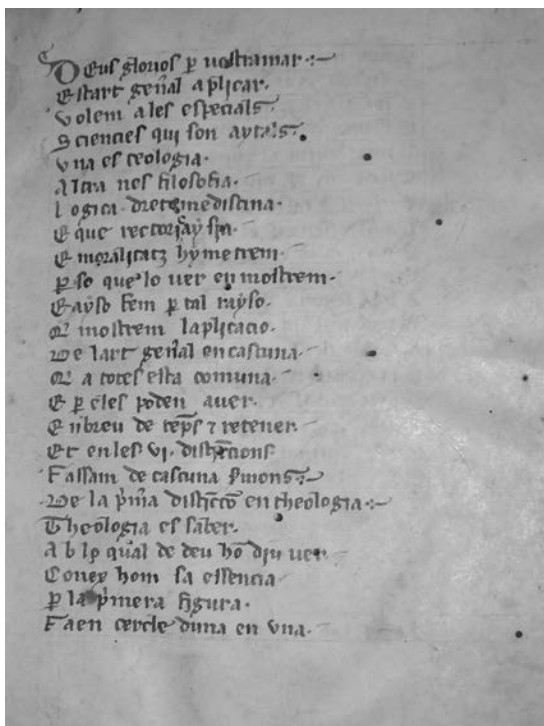 Deus glorios p uostramar
Estart gen̄al aplicar.
Volem ales especials
Sciencies qui son aytals.
Vna es teologia.
Altra nes filosofia.
Logica dret ⁊ medicina.
E que rectoriay sia
E moralitatz hy metrem.
p so que lo uer en mostrem.
E ayso fem p tal rayso.
Q̄ mostrem laplicacio.
De lart gen̄al en cascuna.
Q̄ a totes esta comuna.
E p eles poden auer.
En breu de tēps ⁊ retener.
Et en les vi. distīccions
Fassam de cascuna smons.
De la pm̄a distīccō en theologia.
Theologia es saber.
Ab lo qual de deu hō diu uer.
Conex hom sa essencia
p la pmera figura.
Faen cercle duna en vna.